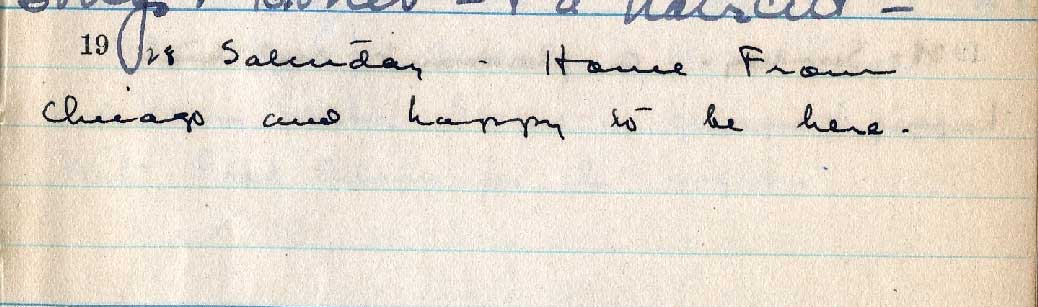 a haircut -
1928 Saturday - Home From
Chicago and happy to be here.